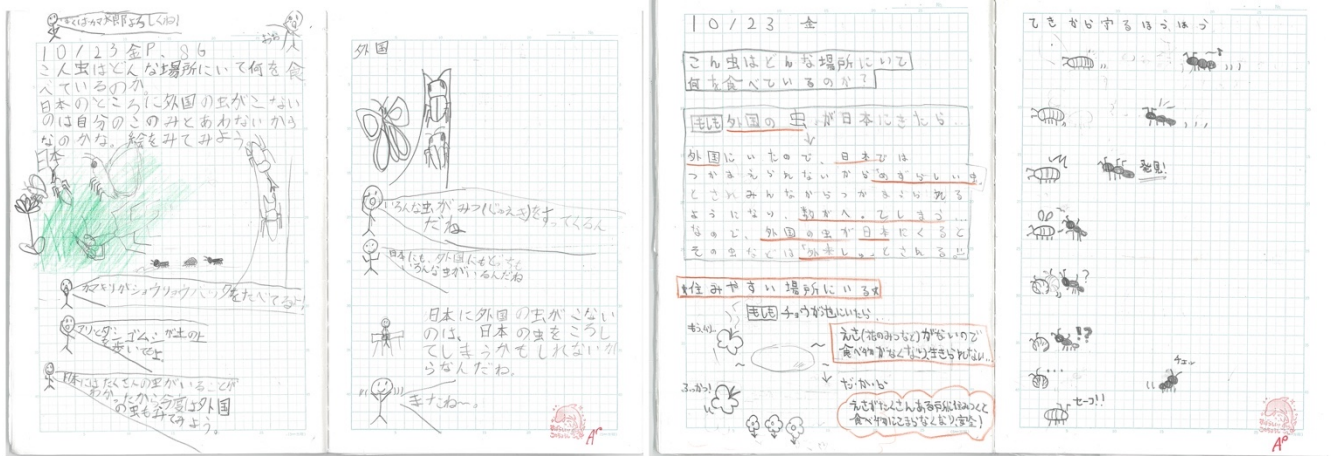 ぼくはカマ太郎よろしくね!
10/23金P.86
こん虫はどんな場所にいて何を食
べているのか。
日本のところに外国の虫がこない
のは自分のこのみとあわないから
なのかな。絵をみてみよう
日本
カマキリがショウリョウバッタをたべてるよ!
アリとダンゴムシが土の上
を歩いてせよ
日本にはたくさんの虫がいることが
わかったから今度は外国
の虫もみてみよう。
外国
いろんな虫がみつ(じゅえき)を
すってくろん
だね
日本にも、外国にも
いろんな虫がいるんだね
日本に外国の虫がこない
のは、日本の虫をころし
てしまうかもしれないか
らなんだね。
またね〜。
A°
10/23 金
こん虫はどんな場所にいて
何を食べているのか?
もしも外国の虫が日本にきたら…
外国にいたので、日本では
つかまえらんないから「めずらしい」
とされみんなからつかまえられる
ようになり、数がへってしまう…
なので、外国の虫が日本にくると
その虫などは「外来しゅ」とされる
住みやすい場所にいる
もしもチョウが池にいたら…
えさ(花のみつなど)がないので
食べ物がなくなり生きられない…
だ・か・ら
ふっかつ!
えさがたくさんある所に住みつくと
食べ物にこまらなくなり安全!
てきからするほうほう
発見!
?
!?
チェッ
セーフ!!
A°